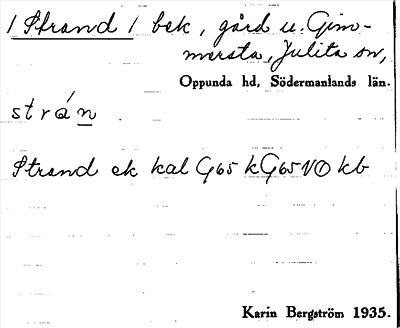 / Strand / bek, gård u. Gim-
mersta, Julita sn,
Oppunda hd, Södermanlands län.
strán
Strand ek kal G65 kG65 VO kb
Karin Bergström 1935.